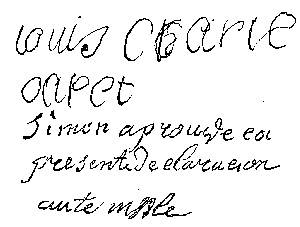 louis Charle
Capet
Simon aprouve ea
presente Declaration
au temple